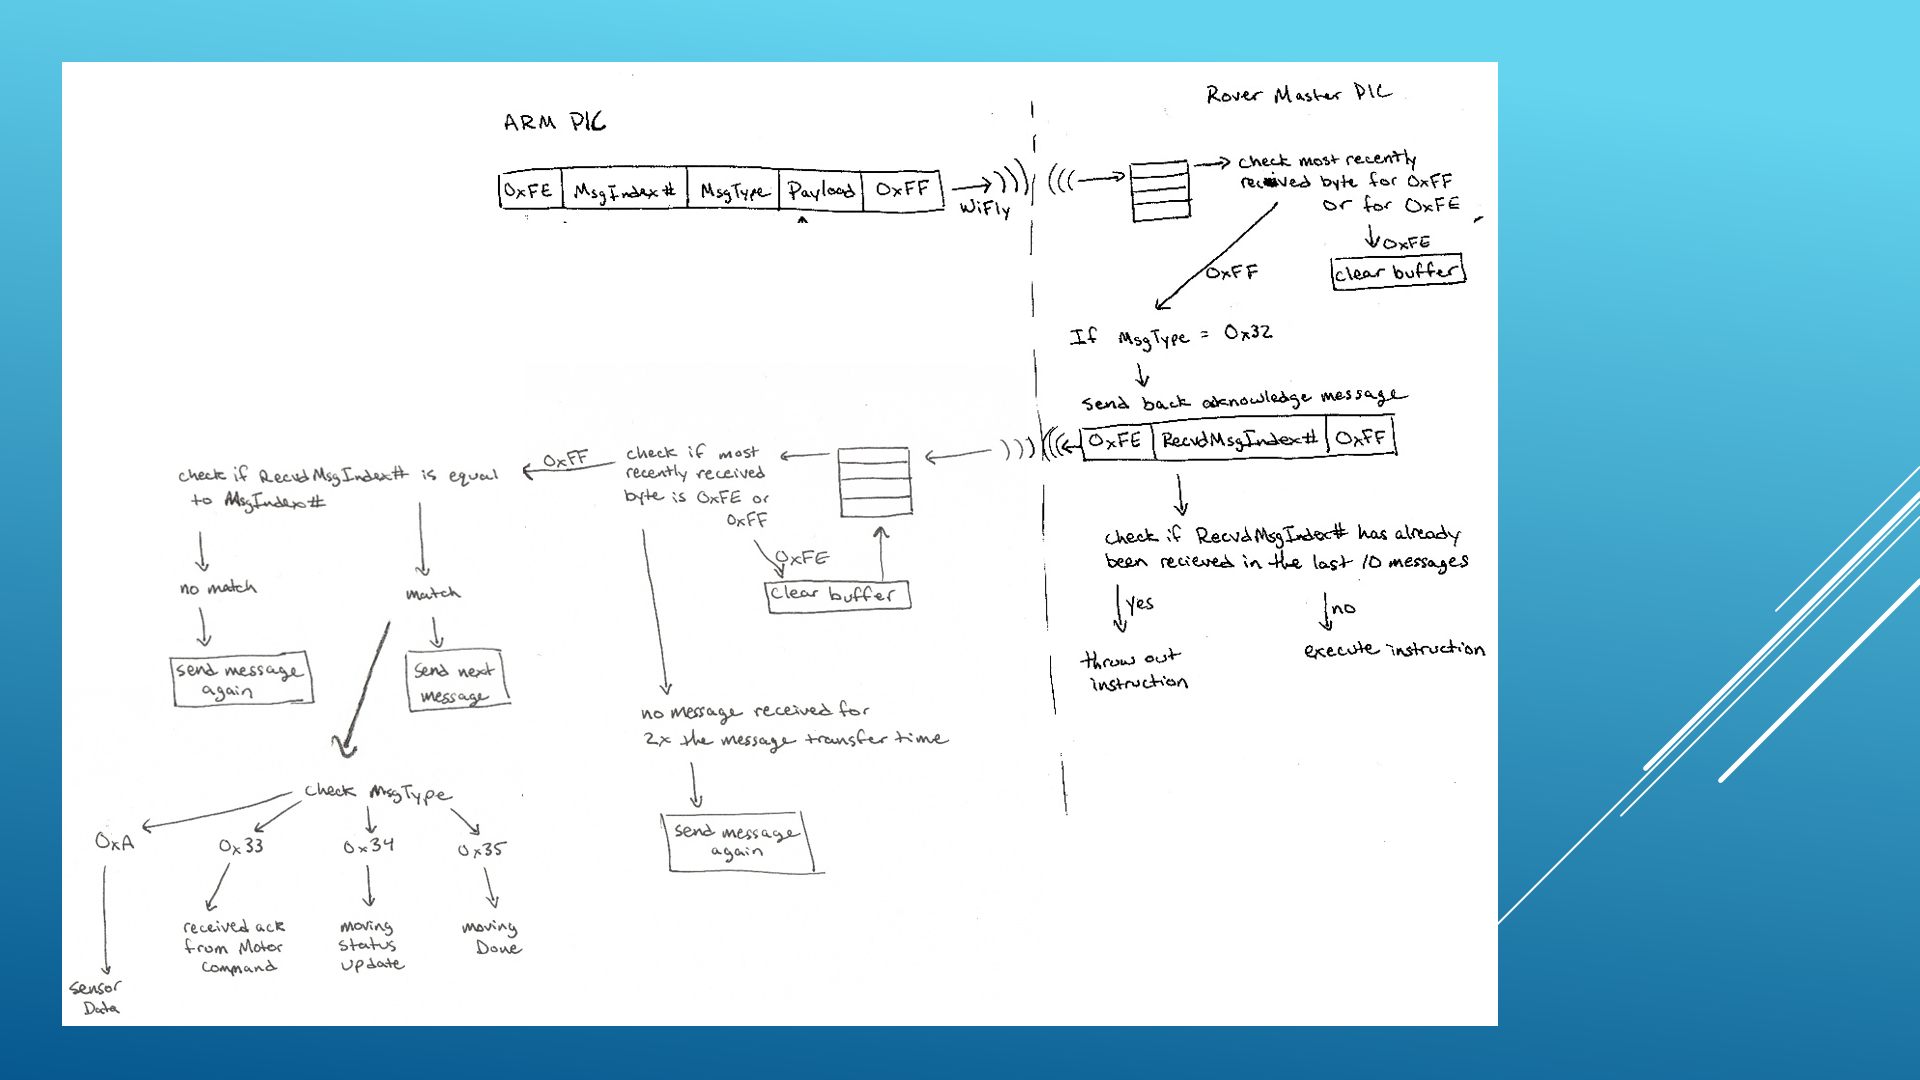 ARM PIC
0xFE MsgIndex# MsgType Payload 0xFF
WiFly
Rover Master PIC
check most recently
received byte for 0xFF
or for 0xFE
0xFE
clear buffer
0xFF
If MsgType = 0x32
send back aknowledge message
0xFE RecvdMsgIndex# 0xFF
check if RecvdMsgIndex# has already
been recieved in the last 10 messages
yes
no
throw out
instruction
execute instruction
check if most
recently received
byte is 0xFE or
0xFF
0xFE
clear buffer
0xFF
check if RecvdMsgIndex# is equal
to MsgIndex#
no match
match
send message
again
send next
message
no message received for
2x the message transfer time
send message
again
check MsgType
0xA
0x33
0x34
0x35
received ack
from Motor
command
moving
status
update
moving
Done
sensor
Data